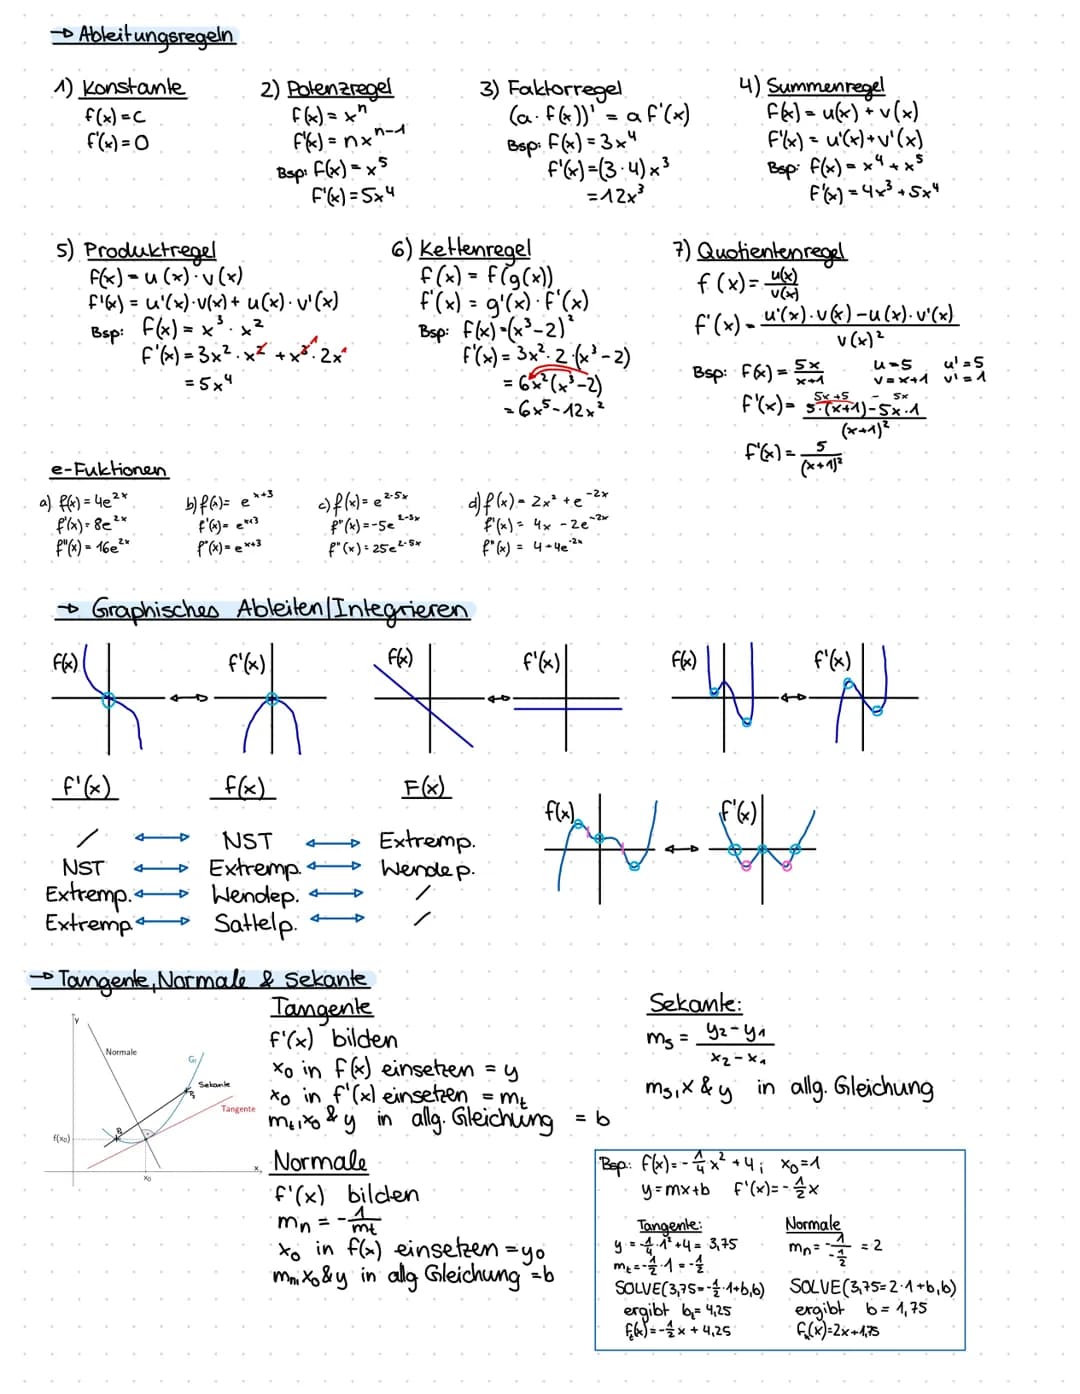 → Ableitungsregeln
1) Konstante
f(x) = C
f'(x) = 0
2) Potenzregel
f(x) = x^n
f'(x) = nx^(n-1)
Bsp: f(x) = x^5
f'(x) = 5x^4
3) Faktorregel
(a · f(x))' = a f'(x)
Bsp: f(x) = 3x^4
f'(x) = (3·4)x^3
= 12x^3
4) Summenregel
f(x) = u(x) + v(x)
f'(x) = u'(x) + v'(x)
Bsp: f(x) = x^4 + x^5
f'(x) = 4x^3 + 5x^4
5) Produktregel
f(x) = u(x) · v(x)
f'(x) = u'(x) · v(x) + u(x) · v'(x)
Bsp: f(x) = x^3 · x^2
f'(x) = 3x^2 · x^2 + x^3 · 2x
= 5x^4
6) Kettenregel
f(x) = f(g(x))
f'(x) = g'(x) · f'(x)
Bsp: f(x) = (x^3 - 2)^2
f'(x) = 3x^2 · 2 · (x^3 - 2)
= 6x^2 (x^3 - 2)
= 6x^5 - 12x^2
7) Quotientenregel
f(x) = u(x)/v(x)
f'(x) = (u'(x) · v(x) - u(x) · v'(x))/v(x)^2
Bsp: f(x) = 5x/(x+1)  u = 5  u' = 5
v = x+1  v' = 1
5x+5 - 5x
f'(x) = (5·(x+1) - 5x·1)/(x+1)^2
f'(x) = 5/(x+1)^2
e-Fuktionen
a) f(x) = 4e^(2x)
f'(x) = 8e^(2x)
f''(x) = 16e^(2x)
b) f(x) = e^(x+3)
f'(x) = e^(x+3)
f''(x) = e^(x+3)
c) f(x) = e^(2-5x)
f'(x) = -5e^(2-5x)
f''(x) = 25e^(2-5x)
d) f(x) = 2x^2 + e^(-2x)
f'(x) = 4x - 2e^(-2x)
f''(x) = 4+4e^(-2x)
→ Graphisches Ableiten/Integrieren
f(x) ↔ f'(x)
f(x) ↔ f'(x)
f(x) ↔ f'(x)
f'(x) f(x) F(x)
/ ↔ NST ↔ Extremp.
NST ↔ Extremp. ↔ Wendep.
Extremp. ↔ Wendep. ↔ /
Extremp. ↔ Sattelp. ↔ /
f(x) ↔ f'(x)
→ Tangente, Normale & Sekante
y
Normale
Gf
Sekante
Tangente
f(x0)
x0
x
Tangente
f'(x) bilden
x0 in f(x) einsetzen = y
x0 in f'(x) einsetzen = mt
mt, x0 & y in allg. Gleichung = b
Normale
f'(x) bilden
mn = -1/mt
x0 in f(x) einsetzen = y0
mn, x0 & y in allg Gleichung = b
Sekante:
ms = (y2 - y1)/(x2 - x1)
ms, x & y in allg. Gleichung
Bsp.: f(x) = -1/4 x^2 + 4; x0 = 1
y = mx+b  f'(x) = -1/2 x
Tangente:
y = -1/4 · 1^2 + 4 = 3,75
mt = -1/2 · 1 = -1/2
SOLVE(3,75 = -1/2 · 1+b,b)
ergibt b = 4,25
ft(x) = -1/2 x + 4,25
Normale
mn = -1/(-1/2) = 2
SOLVE(3,75 = 2·1+b,b)
ergibt b = 1,75
fn(x) = 2x+1,75